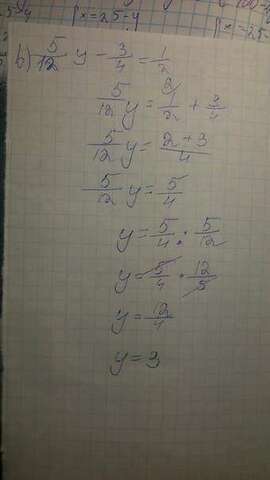 {x=25+y
b) 5/12 y - 3/4 = 1/2
5/12 y = 1/2 + 3/4
5/12 y = 2+3/4
5/12 y = 5/4
y = 5/4 : 5/12
y = 5/4 · 12/5
y = 12/4
y = 3